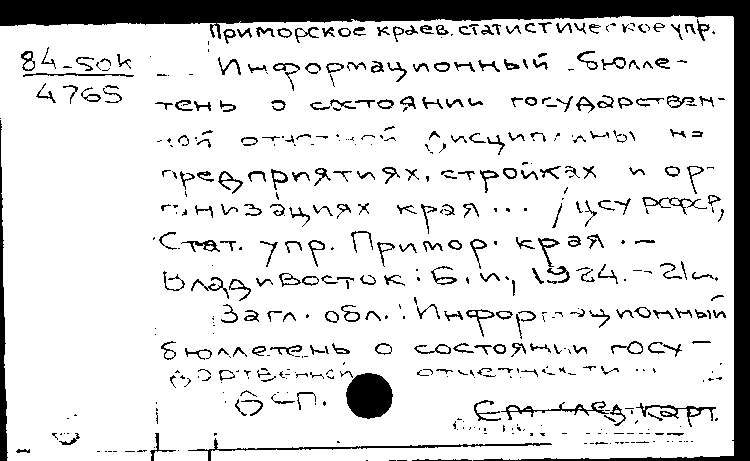 Приморское краев. статистическое упр.
84-50к
4765
Информационный бюлле-
тень о состоянии государствен-
ной отчетной дисциплины на
предприятиях, стройках и ор-
ганизациях края ... / ЦСУ РСФСР,
Стат. упр. Примор. края. -
Владивосток: Б. и., 1984. - 21 см.
Загл. обл.: Информационный
бюллетень о состоянии госу-
дарственной отчетности ...
ДСП.
См. след. карт.